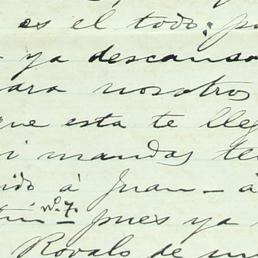 es el todo; p
ya descanso
ara nosotros
que esta te lleg
i mandas te
ido á Juan - á
tin - nº 7. pues ya
Rovalo de m